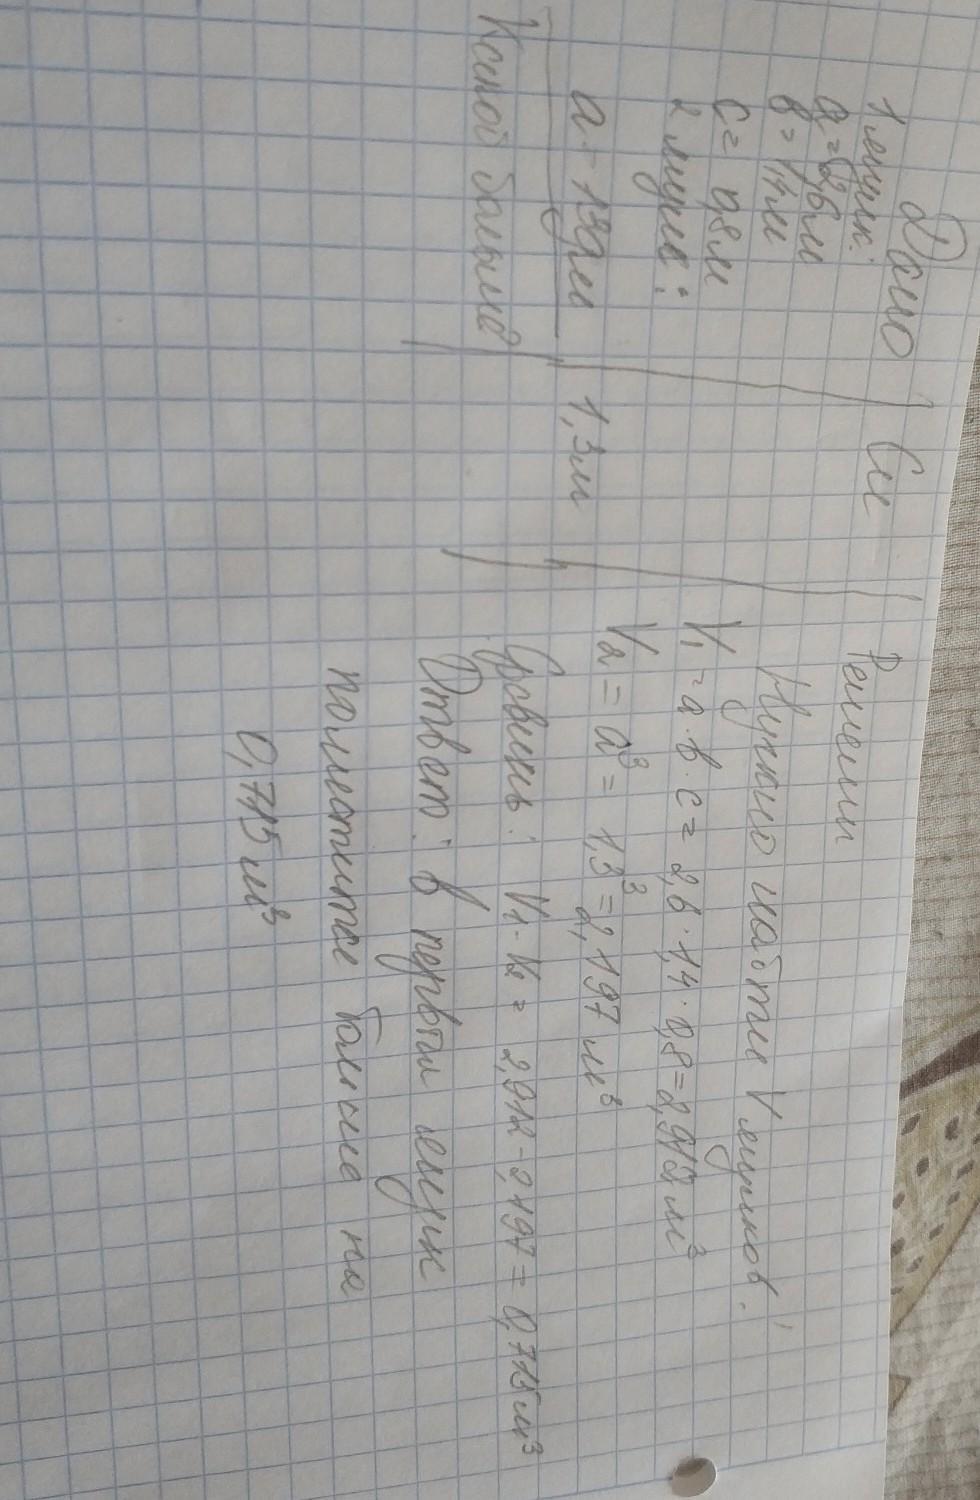 Дано
Си
Решении
1 ящик:
a = 2,6 м
в = 1,4 м
c = 0,8 м
2 ящик:
a - 13дм
1,3м
Какой больше?
Нужно найти V ящиков.
V₁ = a · в · c = 2,6 · 1,4 · 0,8 = 2,912 м³
V₂ = a³ = 1,3³ = 2,197 м³
Сравним: V₁ - V₂ = 2,912 - 2,197 = 0,715 м³
Ответ: в первый ящик
поместится больше на
0,715 м³